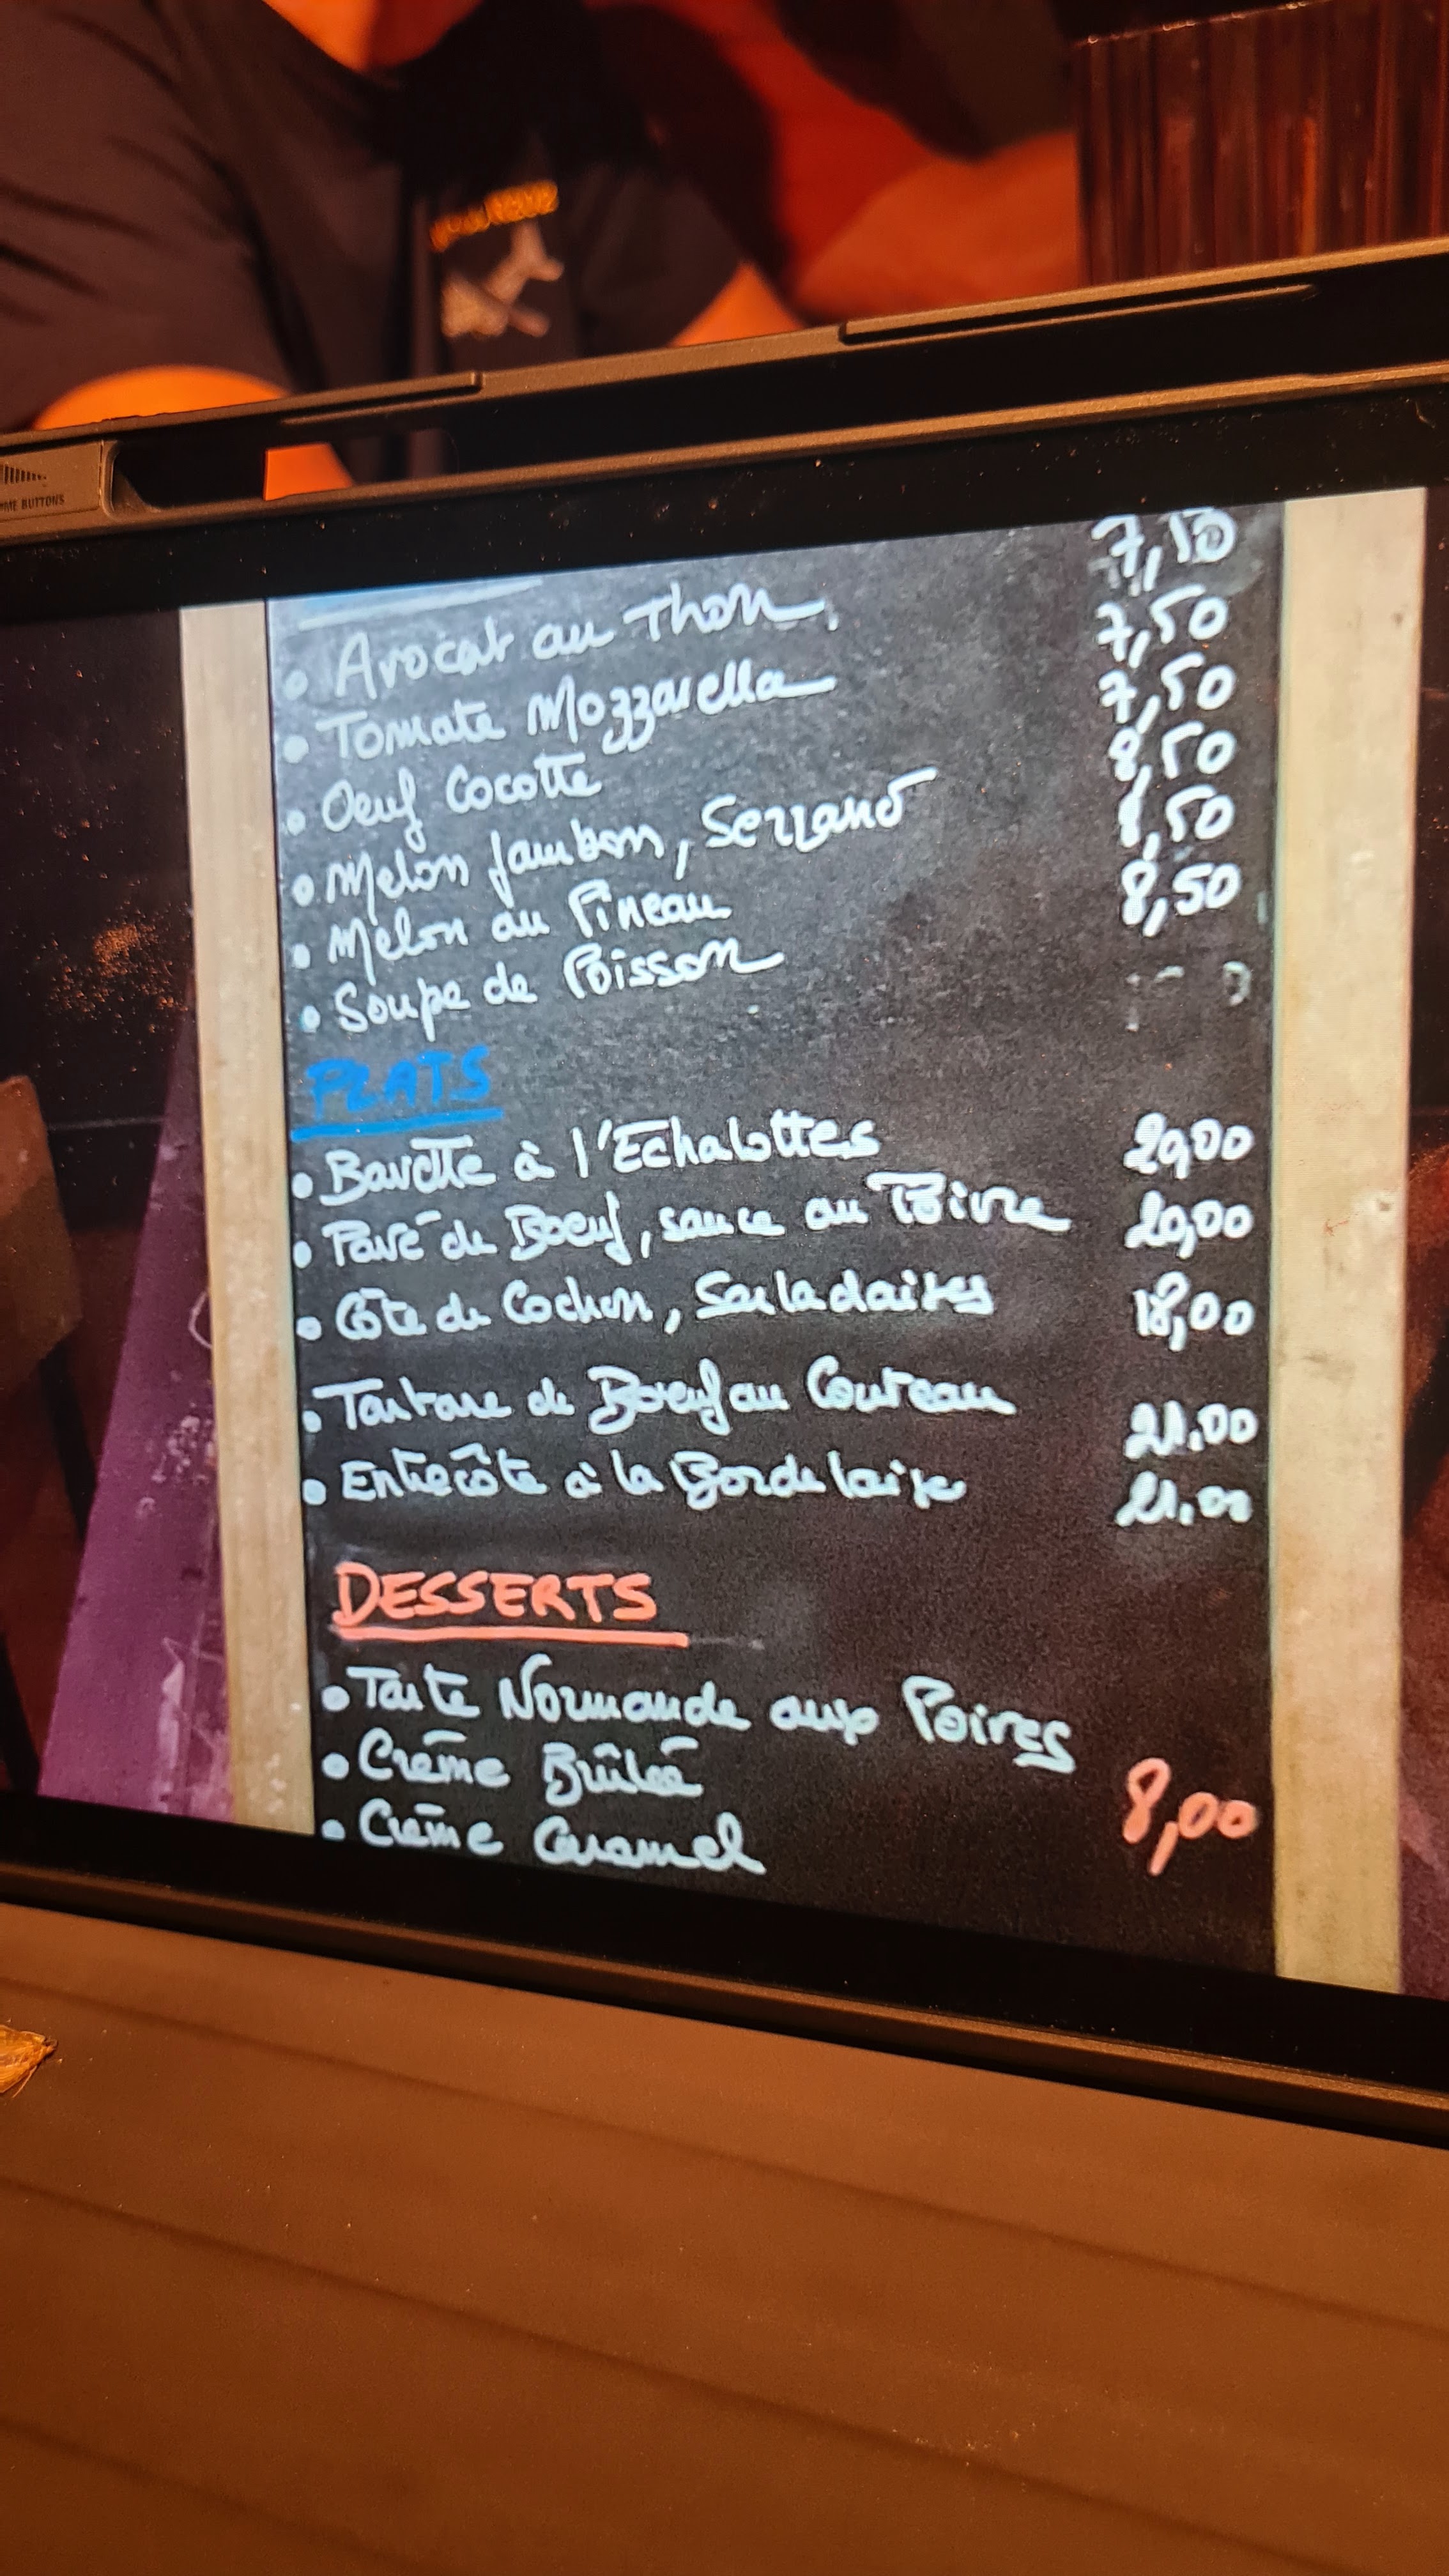 ME BUTTONS
• Avocat au Thon, 7,50
• Tomate Mozzarella 7,50
• Oeuf Cocotte 7,50
• Melon Jambon, Serrano 8,50
• Melon au Pineau 8,50
• Soupe de Poisson 8,50
PLATS
• Bavette à l'Echalottes 20,00
• Pavé de Boeuf, sauce au Poivre 20,00
• Côte de Cochon, Sarladaises 18,00
• Tartare de Boeuf au Couteau 21.00
• Entrecôte à la Bordelaise 21.00
DESSERTS
• Tarte Normande aux Poires
• Crème Brûlée 8,00
• Crème Caramel